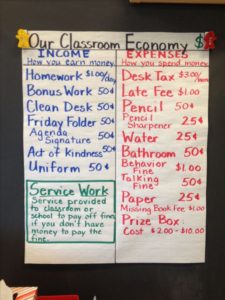 Our Classroom Economy $
INCOME
How you earn money.
Homework $1.00/day
Bonus Work 50¢
Clean Desk 50¢
Friday Folder 50¢
Agenda
Signature 50¢
Act of Kindness 50¢
Uniform 50¢
Service Work
Service provided
to classroom or
school to pay off fines
if you don't have
money to pay the
fine.
EXPENSES
How you spend money.
Desk Tax $3.00/
Late Fee $1.00
Pencil 50¢
Pencil
Sharpener 25¢
Water 25¢
Bathroom 50¢
Behavior
Fine $1.00
Talking
Fine 50¢
Paper 25¢
Missing Book Fee $1.00
Prize Box
Cost $2.00-$10.00